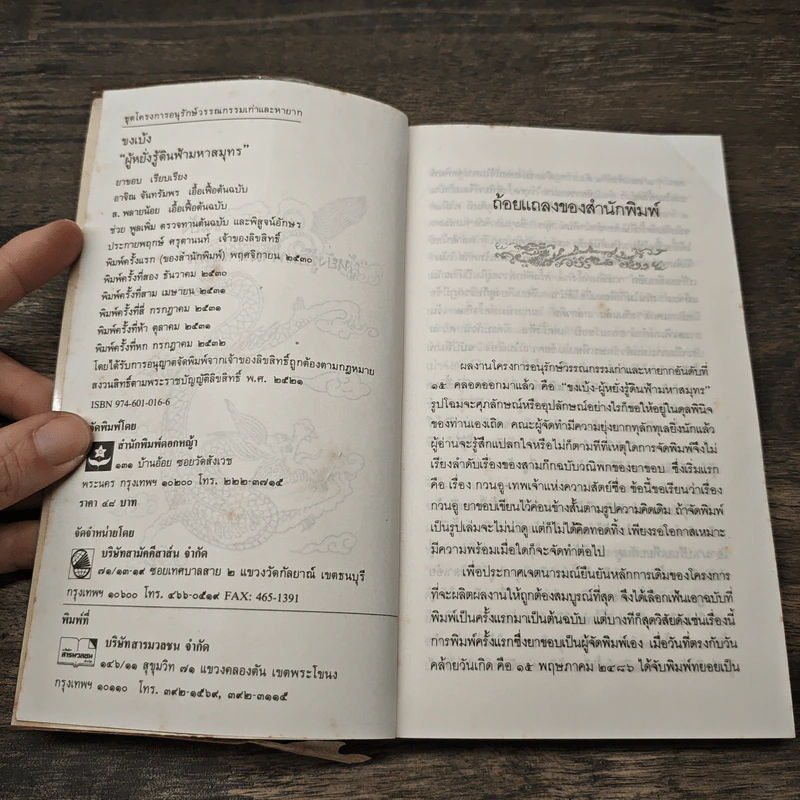 ชุดโครงการอนุรักษ์วรรณกรรมเก่าและหายาก
ขงเบ้ง
“ผู้หยั่งรู้ดินฟ้ามหาสมุทร”
ยาขอบ เรียบเรียง
อาจิณ จันทรัมพร เอื้อเฟื้อต้นฉบับ
ส. พลายน้อย เอื้อเฟื้อต้นฉบับ
ช่วย พูลเพิ่ม ตรวจทานต้นฉบับ และพิสูจน์อักษร
ประกายพฤกษ์ ครุตานนท์ เจ้าของลิขสิทธิ์
พิมพ์ครั้งแรก (ของสำนักพิมพ์) พฤศจิกายน ๒๕๓๐
พิมพ์ครั้งที่สอง ธันวาคม ๒๕๓๐
พิมพ์ครั้งที่สาม เมษายน ๒๕๓๑
พิมพ์ครั้งที่สี่ กรกฎาคม ๒๕๓๑
พิมพ์ครั้งที่ห้า ตุลาคม ๒๕๓๑
พิมพ์ครั้งที่หก กรกฎาคม ๒๕๓๒
โดยได้รับการอนุญาตจัดพิมพ์จากเจ้าของลิขสิทธิ์ถูกต้องตามกฎหมาย
สงวนสิทธิ์ตามพระราชบัญญัติลิขสิทธิ์ พ.ศ. ๒๕๒๑
ISBN 974-601-016-6
จัดพิมพ์โดย
สำนักพิมพ์ดอกหญ้า
๑๓๑ บ้านอ้อย ซอยวัดสังเวช
พระนคร กรุงเทพฯ ๑๐๒๐๐ โทร. ๒๒๒-๓๗๑๕
ราคา ๔๘ บาท
จัดจำหน่ายโดย
บริษัทสามัคคีสาส์น จำกัด
๗๑/๑๓-๑๙ ซอยเทศบาลสาย ๒ แขวงวัดกัลยาณ์ เขตธนบุรี
กรุงเทพฯ ๑๐๖๐๐ โทร. ๔๖๖-๐๕๑๙ FAX: 465-1391
พิมพ์ที่
บริษัทสารมวลชน จำกัด
๑๔๖/๑๑ สุขุมวิท ๗๑ แขวงคลองตัน เขตพระโขนง
กรุงเทพฯ ๑๐๑๑๐ โทร. ๓๙๒-๑๕๖๙, ๓๙๒-๓๑๑๕
ถ้อยแถลงของสำนักพิมพ์
ผลงานโครงการอนุรักษ์วรรณกรรมเก่าและหายากอันดับที่
๑๕ คลอดออกมาแล้ว คือ “ขงเบ้ง-ผู้หยั่งรู้ดินฟ้ามหาสมุทร”
รูปโฉมจะศุภลักษณ์หรืออุปลักษณ์อย่างไรก็ขอให้อยู่ในดุลพินิจ
ของท่านเองเถิด คณะผู้จัดทำมีความยุ่งยากทุลักทุเลยิ่งนักแล้ว
ผู้อ่านจะรู้สึกแปลกใจหรือไม่ก็ตามที่ที่เหตุใดการจัดพิมพ์จึงไม่
เรียงลำดับเรื่องของสามก๊กฉบับวณิพกของยาขอบ ซึ่งเริ่มแรก
คือ เรื่อง กวนอู-เทพเจ้าแห่งความสัตย์ซื่อ ข้อนี้ขอเรียนว่าเรื่อง
กวนอู ยาขอบเขียนไว้ค่อนข้างสั้นตามรูปความคิดเดิม ถ้าจัดพิมพ์
เป็นรูปเล่มจะไม่น่าดู แต่ก็ไม่ได้คิดทอดทิ้ง เพียงรอโอกาสเหมาะ
มีความพร้อมเมื่อใดก็จะจัดทำต่อไป
เพื่อประกาศเจตนารมณ์ยืนยันหลักการเดิมของโครงการ
ที่จะผลิตผลงานให้ถูกต้องสมบูรณ์ที่สุด จึงได้เลือกเฟ้นเอาฉบับที่
พิมพ์เป็นครั้งแรกมาเป็นต้นฉบับ แต่บางทีก็สุดวิสัยดังเช่นเรื่องนี้
การพิมพ์ครั้งแรกซึ่งยาขอบเป็นผู้จัดพิมพ์เอง เมื่อวันที่ตรงกับวัน
คล้ายวันเกิด คือ ๑๕ พฤษภาคม ๒๔๘๖ ได้จับพิมพ์ทยอยเป็น